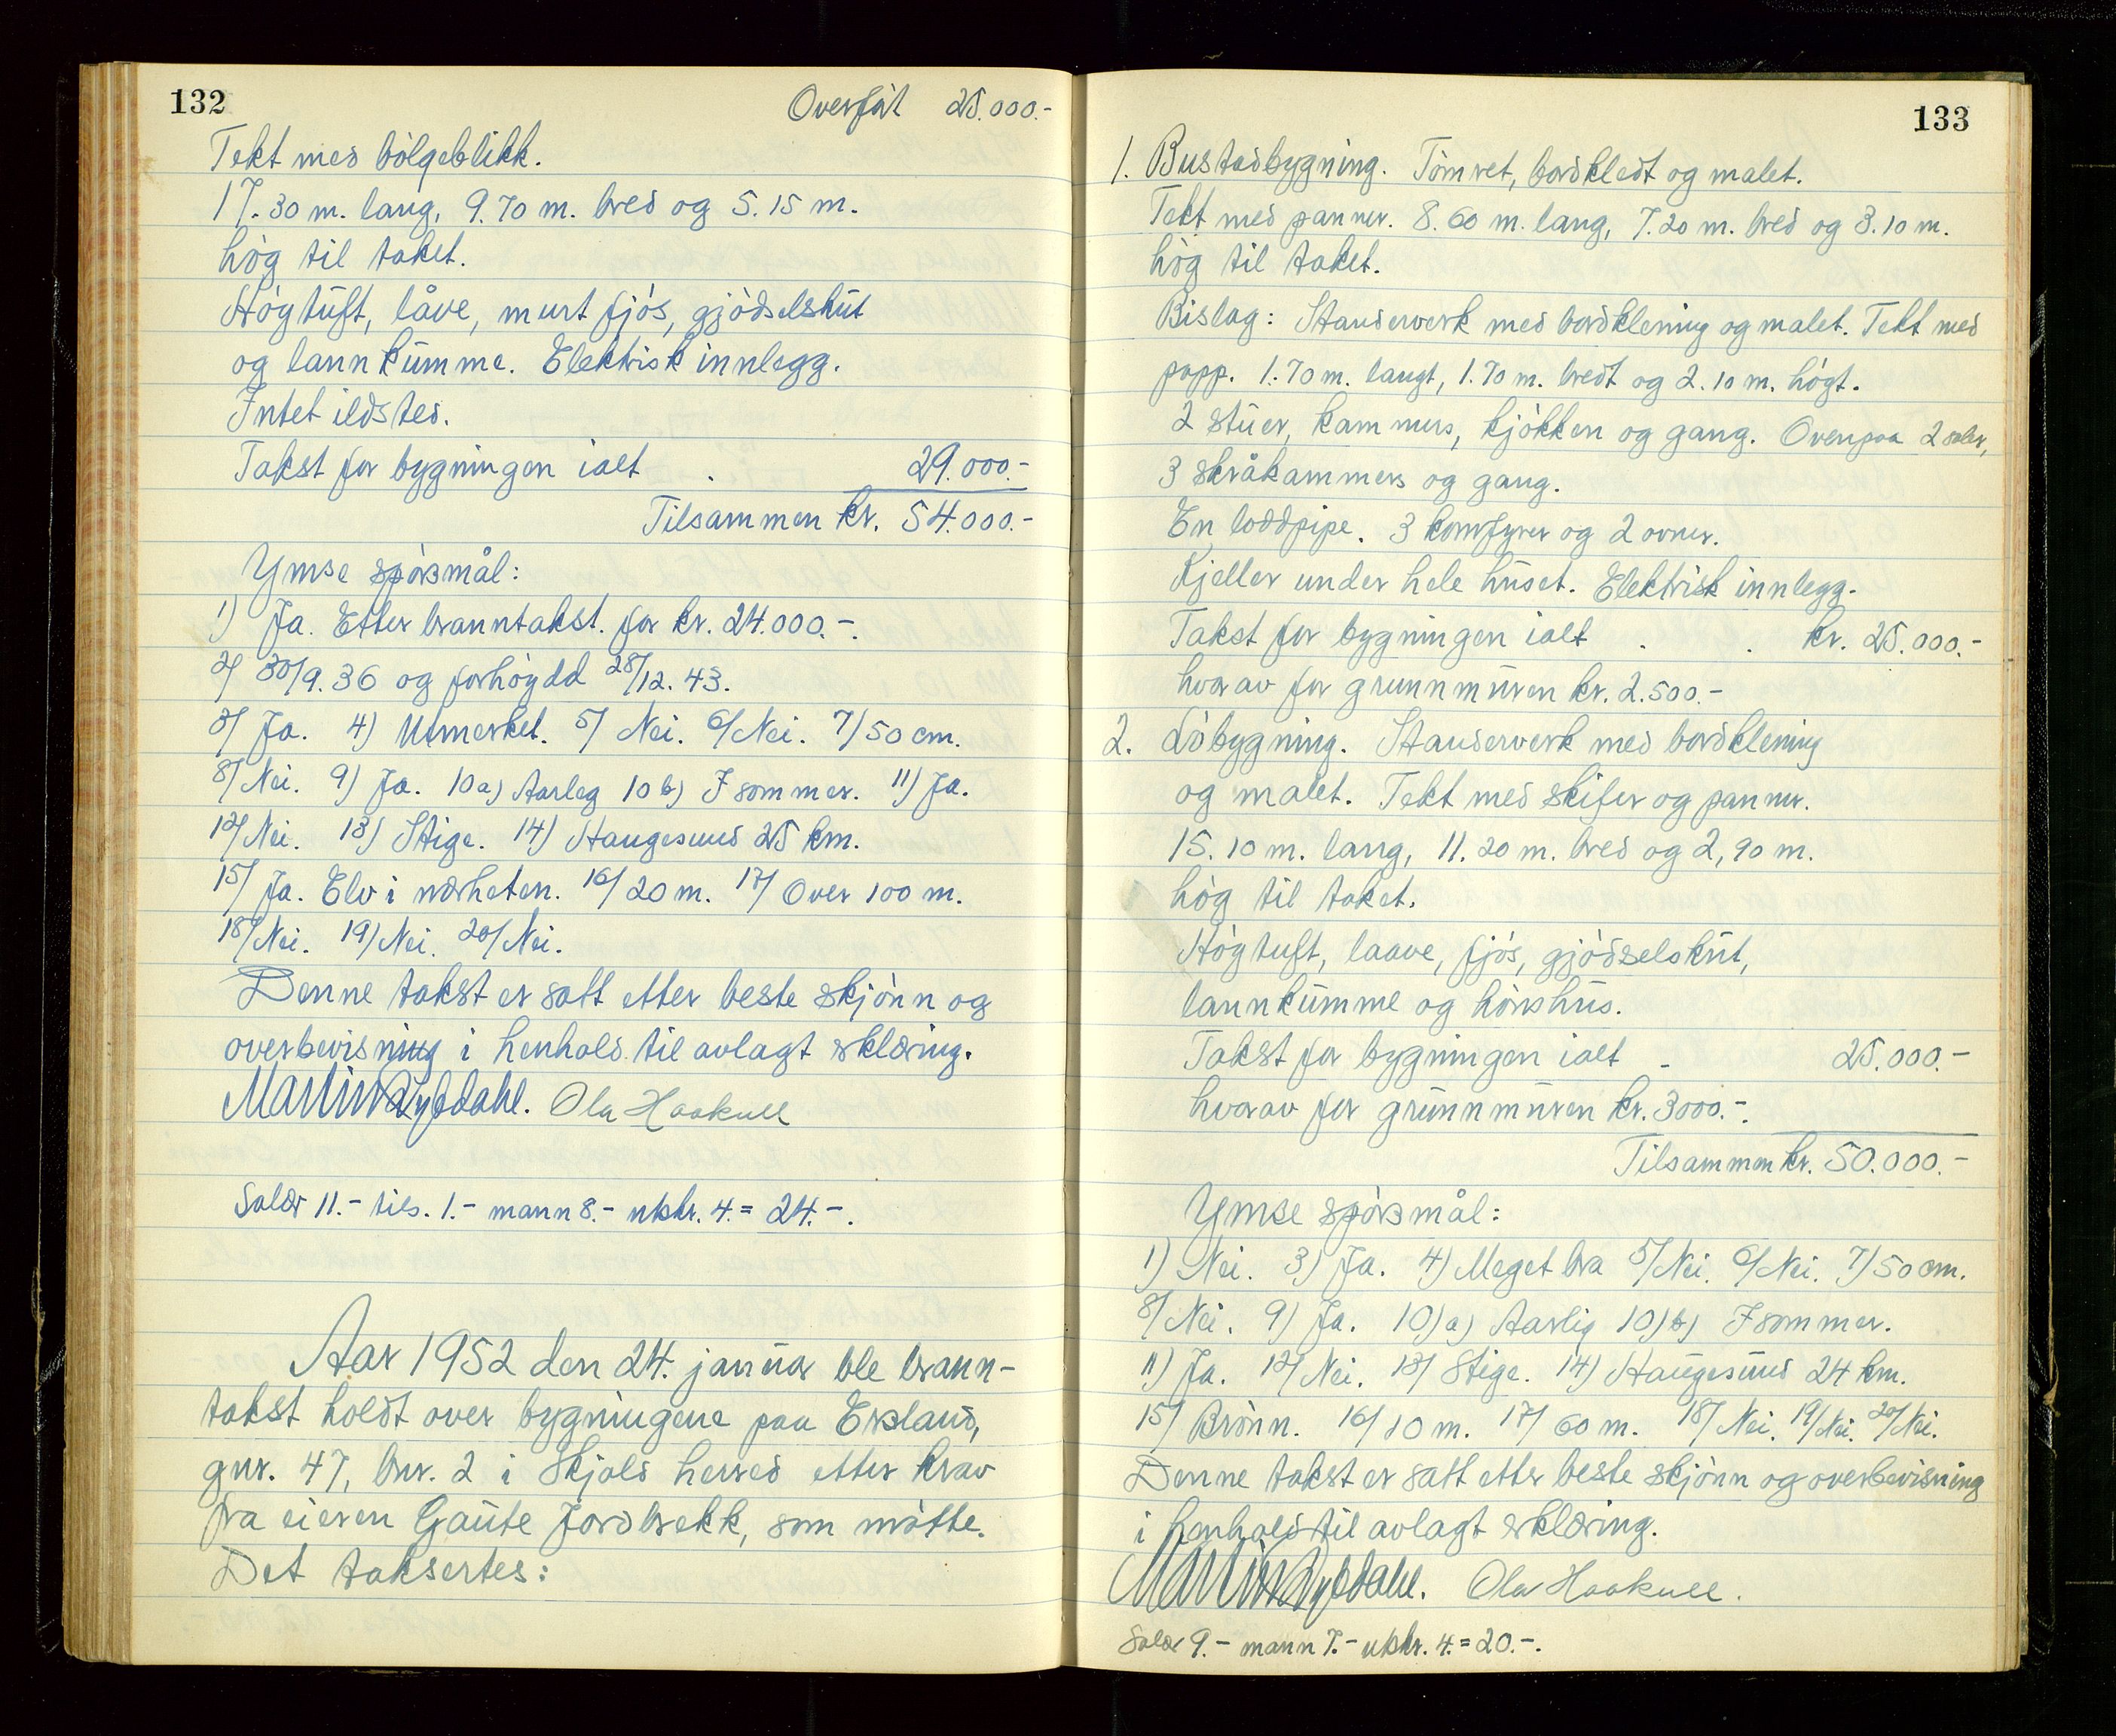 132
Overført 25.000.-
Tekt med bølgeblikk.
17.30 m. lang, 9.70 m. bred og 5.15 m.
høg til taket.
Høgtuft, låve, murt fjøs, gjødselskut
og lannkumme. Elektrisk innlegg.
Intet ildsted.
Takst for bygningen ialt . 29.000.-
Tilsammen kr. 54.000.-
Ymse spørsmål:
1) Ja. Etter branntakst. for kr. 24.000.-.
2) 30/9.36 og forhøgdd 28/12.43.
3) Ja. 4) Utmerket. 5) Nei. 6) Nei. 7) 50 cm.
8) Nei. 9) Ja. 10a) Aarleg 10b) I sommer. 11) Ja.
12) Nei. 13) Stige. 14) Haugesund 25 km.
15) Ja. Elv i nærheten. 16) 20 m. 17) Over 100 m.
18) Nei. 19) Nei. 20) Nei.
Denne takst er satt etter beste skjønn og
overbevisning i henhold til avlagt erklæring.
Martin Ola Haakull
Salær 11.- tils. 1.- mann 8.- utskr. 4.= 24.-.
Aar 1952 den 24. januar ble brann-
takst holdt over bygningene paa Ersland,
gnr. 47, bnr. 2 i Skjold herred etter krav
fra eieren Gaute Jordbrekk, som møtte.
Det taksertes:
133
1. Bustadbygning. Tømret, bordkledt og malet.
Tekt med panner. 8.60 m. lang, 7.20 m. bred og 3.10 m.
høg til taket.
Bislag: Standerverk med bordklening og malet. Tekt med
papp. 1.70 m. langt, 1.70 m. bredt og 2.10 m. høgt.
2 stuer, kammers, kjøkken og gang. Ovenpaa 2 saler,
3 skråkammers og gang.
En loddpipe. 3 komfyrer og 2 ovner.
Kjeller under hele huset. Elektrisk innlegg.
Takst for bygningen ialt . . kr. 25.000.-
hvorav for grunnmuren kr. 2.500.-
2. Løbygning. Standerverk med bordklening
og malet. Tekt med skifer og panner.
15.10 m. lang, 11.20 m. bred og 2,90 m.
høg til taket.
Høgtuft, laave, fjøs, gjødselskut,
lannkumme og hønshus.
Takst for bygningen ialt - 25.000.-
hvorav for grunnmuren kr. 3000.-.
Tilsammen kr. 50.000.-
Ymse spørsmål:
1) Nei. 3) Ja. 4) Meget bra 5) Nei. 6) Nei. 7) 50 cm.
8) Nei. 9) Ja. 10)a) Aarlig 10)b) I sommer.
11) Ja. 12) Nei. 13) Stige. 14) Haugesund 24 km.
15) Brønn. 16) 10 m. 17) 60 m. 18) Nei. 19) Nei. 20) Nei.
Denne takst er satt etter beste skjønn og overbevisning
i henhold til avlagt erklæring.
Martin Ola Haakull.
Salær 9.- mann 7.- utskr. 4.= 20.-.